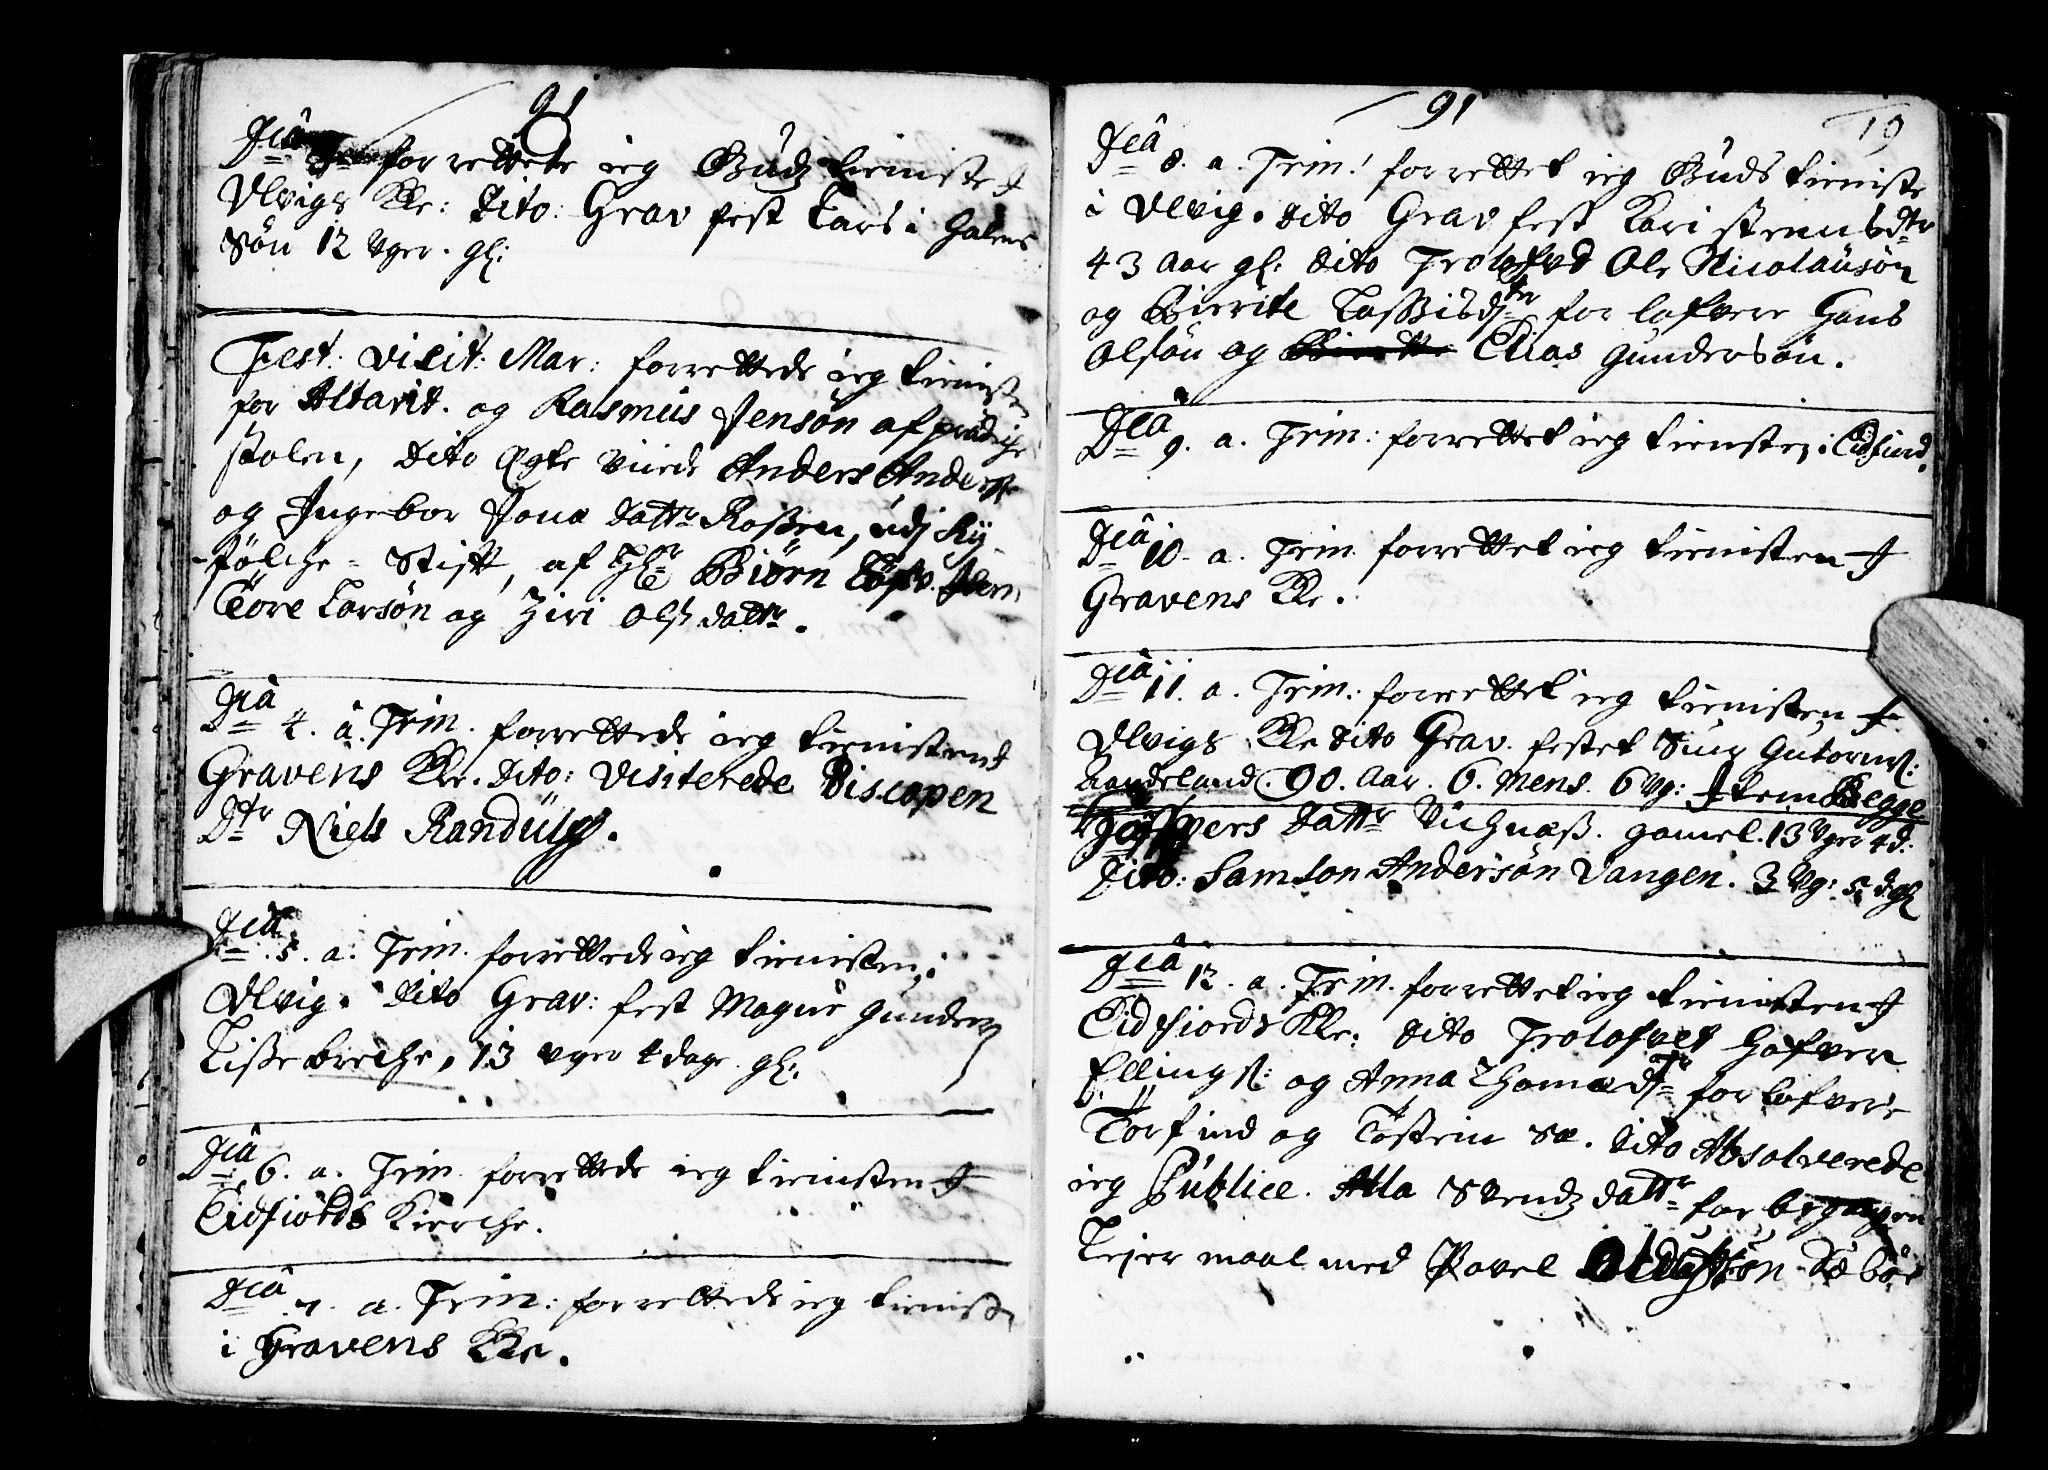 91
Dca forrettede ieg Gudz tieniste J
Vlvigs Kle: Dito: Grav fest Lars i Halens
Søn 12 Vger. gl:
Fest: Visit: Mar: forrettede ieg tienisten
for Altarit. og Rasmus Jensøn af prædiche
stolen, Dito Egte viiede Anders Anders
og Ingebor Jona dattr Roßen, udj Ky
følche-Stift, af Hr Biørn
Tore Larsøn og Ziri Olß dattr.
Dca 4. a. Trin. forrettede ieg tienisten J
Gravens Kle. Dito: Visiterede Biscopen
Dtr Niels Randulf.
Dca 5. a. Trin. forrettede ieg tienisten i
Vlvig. Dito Grav: fest Magne Gunders
Lisse breche, 13 vger 4 dage. gl:
Dca 6. a. Trin. forrettede ieg tienisten J
Eidfiords Kierche.
Dca 7. a. Trin: forrettede ieg tieniste
i Gravens Kle.
91
19
Dca 8. a. Trin: forrettet ieg Guds tieniste
i Vlvig. Dito Grav fest Kari stensdtr
43 Aar gl: Dito Trolofved Ole Nicolausøn
og Bierite Laßisdtr for lofvere Hans
Olsøn og Elias Gundersøn.
Dca 9. a. Trin: forrettet ieg tiensten i Eidfiord.
Dca 10. a. Trin. forrettet ieg tienisten J
Gravens Kle.
Dca 11. a. Trin: forrettet ieg tienisten J
Vlvigs Kle Dito Grav. festet Siur Gutorms:
Haadeland. 90. Aar. 6. Mens. 6 Vg: Item Begge
Jospers Dattr Vichnæß. gamel. 13 Vger 4 d.
Dito: Samson Andersøn Vangen. 3 Vg: 5 d gl
Dca 12. a. Trin. forrettet ieg tienisten J
Eidfiords Kle: Dito Trolofvet Hafven
Ellingß: og Anna Thomædtr for lofvere
Torfind og Tostein Sæ. Dito Absolverede
ieg Publice. Alla Svendz dattr for begangen
Lejermaal med Povel Sæbøe